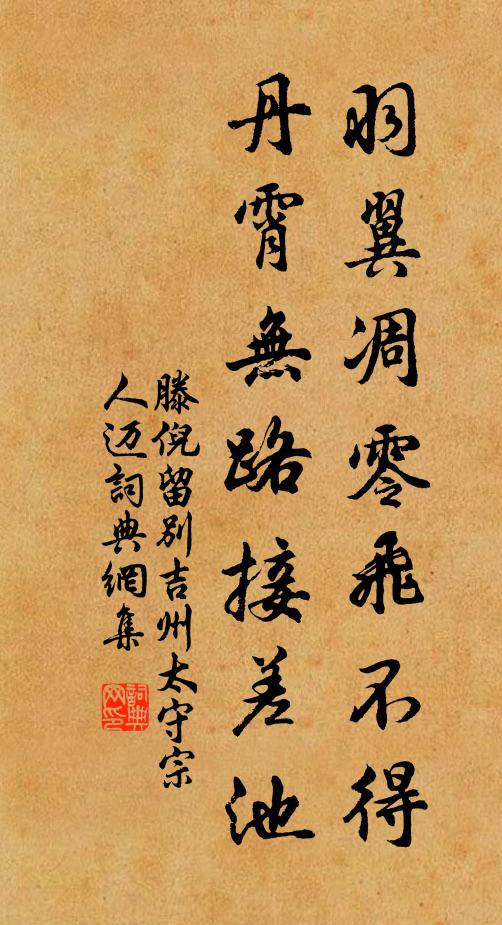 羽翼凋零飛不得
丹霄無路接差池
滕倪留別吉州太守宗
人迈詞典網集
詞典
网印